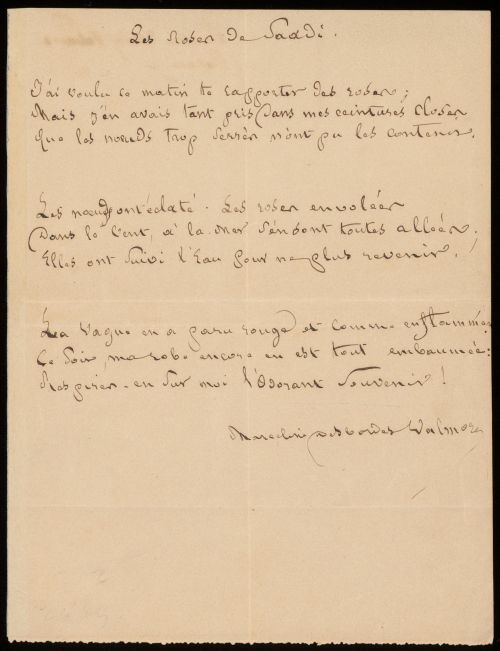 Les roses de Saadi.
J'ai voulu ce matin te rapporter des roses ;
Mais j'en avais tant pris dans mes ceintures closes
Que les nœuds trop serrés n'ont pu les contenir.
Les nœuds ont éclaté. Les roses envolées
Dans le vent, à la mer s'en sont toutes allées.
Elles ont suivi l'Eau pour ne plus revenir.
La vague en a paru rouge et comme enflammée
Ce soir, ma robe encore en est tout embaumée :
Respires-en sur moi l'Odorant Souvenir !
Marceline Desbordes Valmore